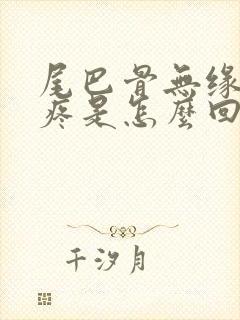 尾巴骨無緣
疼是怎麼回
千汐月